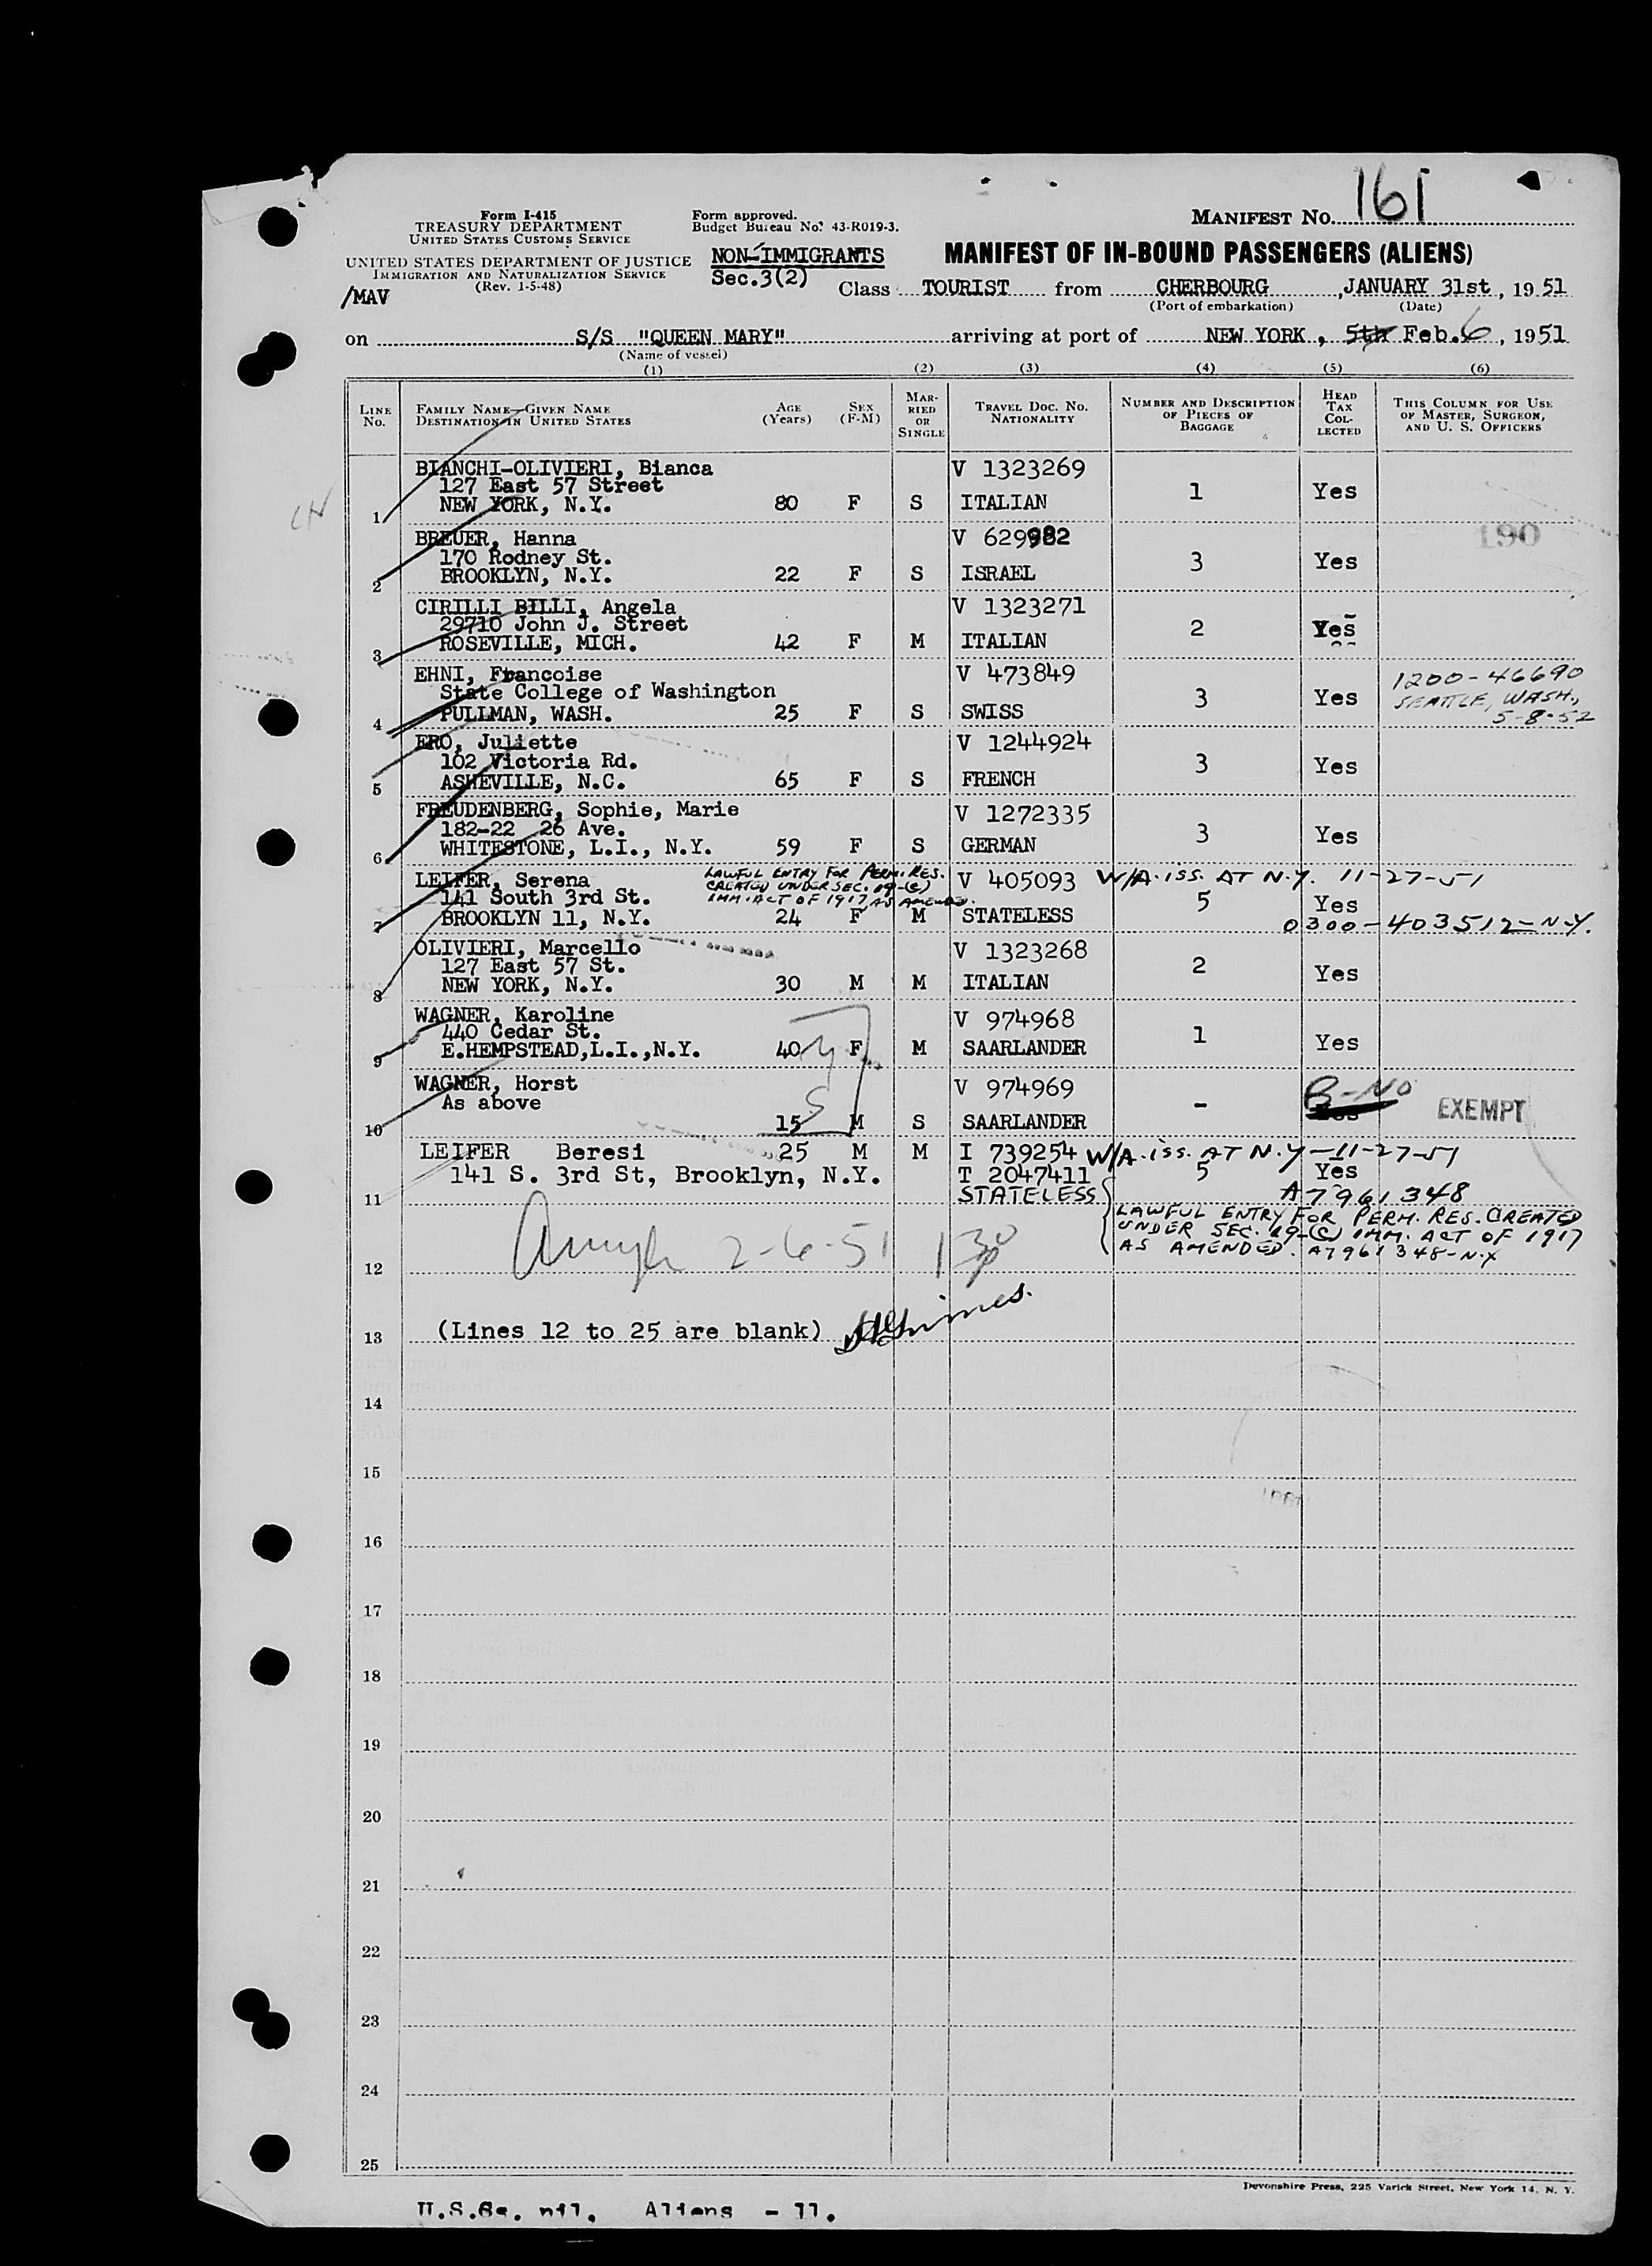 161
Form I-415
TREASURY DEPARTMENT
UNITED STATES CUSTOMS SERVICE
UNITED STATES DEPARTMENT OF JUSTICE
IMMIGRATION AND NATURALIZATION SERVICE
(Rev. 1-5-48)
/MAV
Form approved.
Budget Bureau No. 43-R019-3.
NON-IMMIGRANTS
Sec.3(2)
MANIFEST NO.
MANIFEST OF IN-BOUND PASSENGERS (ALIENS)
Class TOURIST from CHERBOURG, JANUARY 31st, 1951
(Port of embarkation) (Date)
on S/S "QUEEN MARY" arriving at port of NEW YORK, 5th Feb. 6, 1951
(Name of vessel)
(1) (2) (3) (4) (5) (6)
LINE No. FAMILY NAME—GIVEN NAME DESTINATION IN UNITED STATES AGE (Years) SEX (F-M) MARRIED OR SINGLE TRAVEL DOC. NO. NATIONALITY NUMBER AND DESCRIPTION OF PIECES OF BAGGAGE HEAD TAX COLLECTED THIS COLUMN FOR USE OF MASTER, SURGEON, AND U. S. OFFICERS
BIANCHI-OLIVIERI, Bianca V 1323269
127 East 57 Street
1 NEW YORK, N.Y. 80 F S ITALIAN 1 Yes
BREUER, Hanna V 629982 190
170 Rodney St.
2 BROOKLYN, N.Y. 22 F S ISRAEL 3 Yes
CIRILLI BILLI, Angela V 1323271
29710 John J. Street
3 ROSEVILLE, MICH. 42 F M ITALIAN 2 Yes
EHNI, Francoise V 473849 1200-46690
State College of Washington SEATTLE, WASH.,
4 PULLMAN, WASH. 25 F S SWISS 3 Yes 5-8-52
ERO, Juliette V 1244924
102 Victoria Rd.
5 ASHEVILLE, N.C. 65 F S FRENCH 3 Yes
FREUDENBERG, Sophie, Marie V 1272335
182-22 26 Ave.
6 WHITESTONE, L.I., N.Y. 59 F S GERMAN 3 Yes
LAWFUL ENTRY FOR PERM. RES.
CREATED UNDER SEC. 19-(C)
IMM. ACT OF 1917 AS AMENDED.
LEIFER, Serena V 405093 W/A. iss. AT N.Y. 11-27-51
141 South 3rd St.
7 BROOKLYN 11, N.Y. 24 F M STATELESS 5 Yes
0300-403512-N.Y.
OLIVIERI, Marcello V 1323268
127 East 57 St.
8 NEW YORK, N.Y. 30 M M ITALIAN 2 Yes
WAGNER, Karoline V 974968
440 Cedar St.
9 E.HEMPSTEAD,L.I.,N.Y. 40 F M SAARLANDER 1 Yes
WAGNER, Horst V 974969 B-NO EXEMPT
As above
10 15 M S SAARLANDER - Yes
LEIFER Beresi 25 M M I 739254 W/A. iss. AT N.Y-11-27-51
141 S. 3rd St, Brooklyn, N.Y. T 2047411 5 Yes
11 STATELESS A7961348
LAWFUL ENTRY FOR PERM. RES. CREATED
UNDER SEC. 19-(C) IMM. ACT OF 1917
AS AMENDED. A7961348-N.Y
2-6-51
12
13 (Lines 12 to 25 are blank)
14
15
16
17
18
19
20
21
22
23
24
25
Devonshire Press, 225 Varick Street, New York 14, N. Y.
U.S.Cs. nil. Aliens - 11.